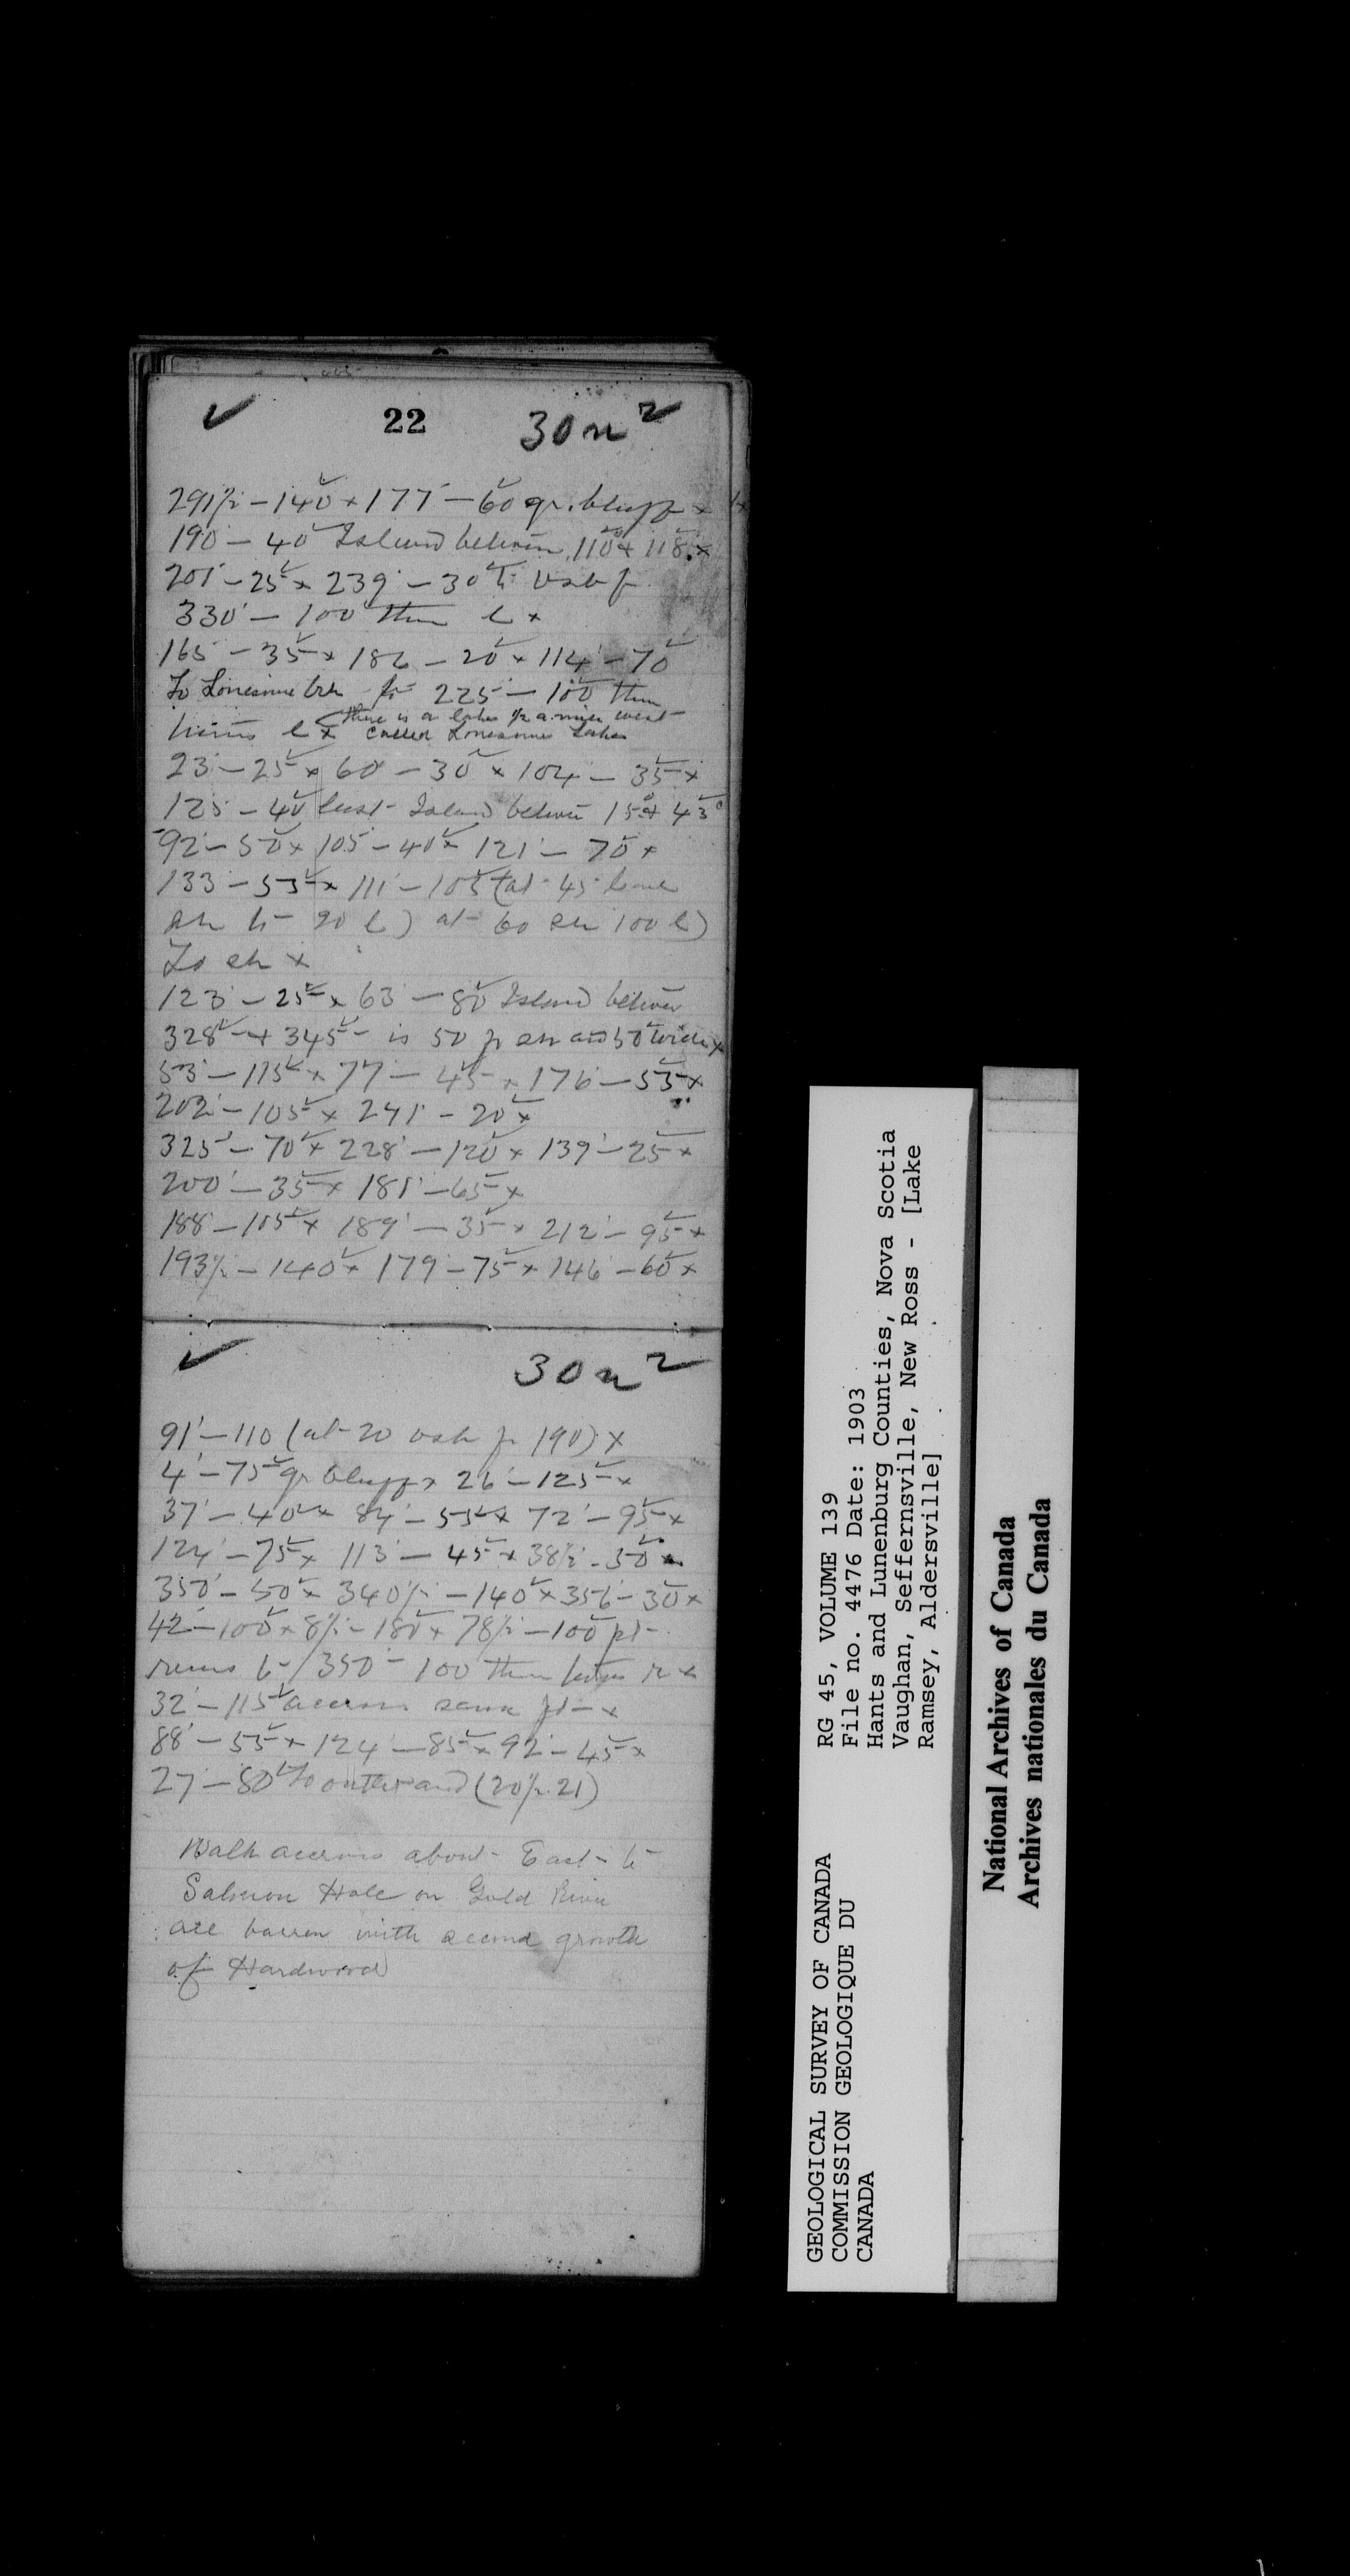 ✓ 22 30 n 2
291½ - 140 x 177 - 60 gr. bluff x
190 - 40 Island between 110 + 118 x
201 - 25 x 239 - 30
330 - 100 then l x
165 - 35 x 186 - 20 x 114 - 70
To Lonesome brk fr 225 - 100 then
turns l x there is a lake ½ a mile west
called Lonesome Lake
23 - 25 x 60 - 30 x 104 - 35 x
125 - 40 least Island between 15° + 43°
92 - 50 x 105 - 40 x 121 - 70 x
133 - 55 x 111 - 105 (at 45 leave
sh to 90 l) at 60 sh 100 l)
To sh x
123 - 25 x 63 - 80 Island between
328 + 345 is 50 fr sh and 50 wide x
53 - 115 x 77 - 45 x 176 - 55 x
202 - 105 x 241 - 20 x
325 - 70 x 228 - 120 x 139 - 25 x
200 - 35 x 181 - 65 x
188 - 105 x 189 - 35 x 212 - 95 x
193½ - 140 x 179 - 75 x 146 - 60 x
✓ 30 n 2
91 - 110 (at 20 fr 190) x
4 - 75 gr bluff x 26 - 125 x
37 - 40 x 84 - 55 x 72 - 95 x
124 - 75 x 113 - 45 x 38½ - 50 x
350 - 50 x 340½ - 140 x 356 - 30 x
42 - 100 x 8½ - 180 x 78½ - 100 pt
runs to 350 - 100 then turns r x
32 - 115 across same pt x
88 - 55 x 124 - 85 x 92 - 45 x
27 - 80 To outlet and (20 p. 21)
Walk across about East to
Salmon Hole on Gold River
all barren with second growth
of Hardwood
RG 45, VOLUME 139
File no. 4476 Date: 1903
Hants and Lunenburg Counties, Nova Scotia
Vaughan, Seffernsville, New Ross - [Lake
Ramsey, Aldersville]
GEOLOGICAL SURVEY OF CANADA
COMMISSION GEOLOGIQUE DU
CANADA
National Archives of Canada
Archives nationales du Canada